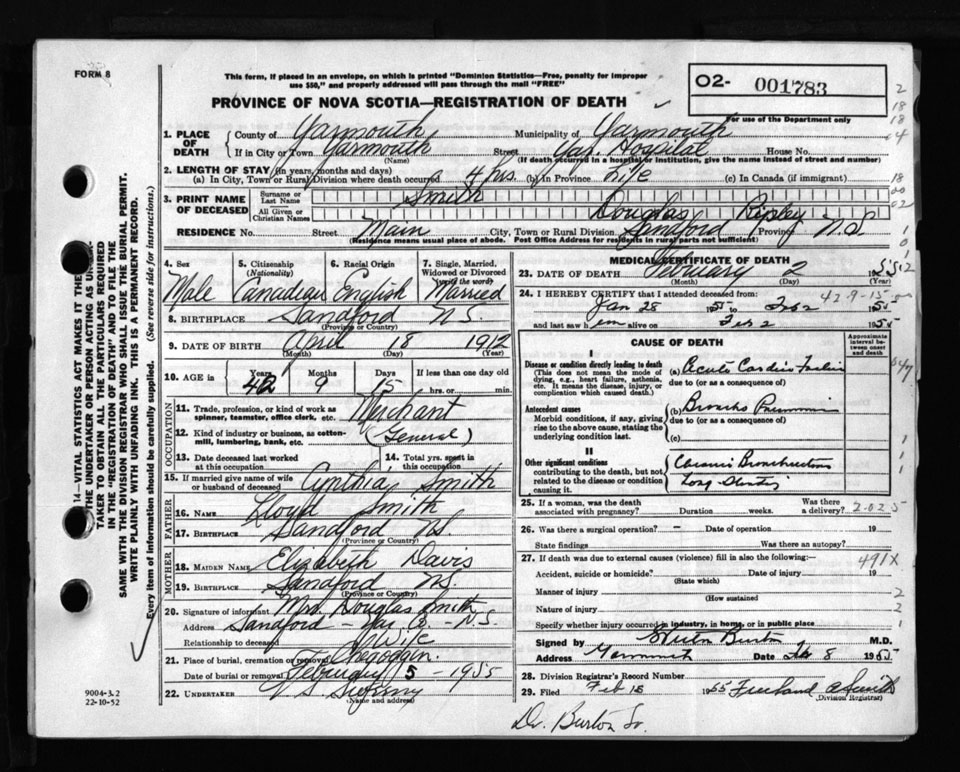 FORM 8
This form, if placed in an envelope, on which is printed "Dominion Statistics—Free, penalty for improper
use $50," and properly addressed will pass through the mail "FREE"
PROVINCE OF NOVA SCOTIA—REGISTRATION OF DEATH
02- 001783
For use of the Department only
1. PLACE OF DEATH County of Yarmouth Municipality of Yarmouth
If in City or Town Yarmouth Street Yar. Hospital House No.
(Name) (If death occurred in a hospital or institution, give the name instead of street and number)
2. LENGTH OF STAY (in years, months and days)
(a) In City, Town or Rural Division where death occurred 4 hrs. (b) in Province Life (c) in Canada (if immigrant)
3. PRINT NAME OF DECEASED Surname or Last Name Smith
All Given or Christian Names Douglas Ripley
RESIDENCE No. Street Main City, Town or Rural Division Sandford Province N.S.
(Residence means usual place of abode. Post Office Address for residents in rural parts not sufficient)
4. Sex Male
5. Citizenship (Nationality) Canadian
6. Racial Origin English
7. Single, Married, Widowed or Divorced (write the word) Married
8. BIRTHPLACE Sandford N.S.
(Province or Country)
9. DATE OF BIRTH April 18 1912
(Month) (Day) (Year)
10. AGE in Years 42 Months 9 Days 15 If less than one day old
hrs. or min.
OCCUPATION
11. Trade, profession, or kind of work as spinner, teamster, office clerk, etc. Merchant
12. Kind of industry or business, as cotton-mill, lumbering, bank, etc. (General)
13. Date deceased last worked at this occupation
14. Total yrs. spent in this occupation
15. If married give name of wife or husband of deceased Cynthia Smith
FATHER
16. NAME Lloyd Smith
17. BIRTHPLACE Sandford N.S.
(Province or Country)
MOTHER
18. MAIDEN NAME Elizabeth Davis
19. BIRTHPLACE Sandford N.S.
(Province or Country)
20. Signature of informant Mrs. Douglas Smith
Address Sandford - Yar. Co. - N.S.
Relationship to deceased Wife
21. Place of burial, cremation or removal
Date of burial or removal February 5 - 1955
22. UNDERTAKER V. S. Sweeny
(Name and address)
MEDICAL CERTIFICATE OF DEATH
23. DATE OF DEATH February 2 1955
(Month) (Day)
24. I HEREBY CERTIFY that I attended deceased from:
Jan 28 1955 to Feb 2 1955
and last saw him alive on Feb 2 1955
CAUSE OF DEATH
Approximate interval between onset and death
I
Disease or condition directly leading to death
(This does not mean the mode of dying, e.g., heart failure, asthenia, etc. It means the disease, injury, or complication which caused death.)
(a) Acute Cardiac Failure
due to (or as a consequence of)
Antecedent causes
Morbid conditions, if any, giving rise to the above cause, stating the underlying condition last.
(b) Broncho Pneumonia
due to (or as a consequence of)
(c)
II
Other significant conditions
contributing to the death, but not related to the disease or condition causing it.
25. If a woman, was the death associated with pregnancy? Duration weeks. Was there a delivery?
26. Was there a surgical operation? — Date of operation 19
State findings Was there an autopsy?
27. If death was due to external causes (violence) fill in also the following:-
Accident, suicide or homicide? Date of injury 19
(State which)
Manner of injury
(How sustained)
Nature of injury
Specify whether injury occurred in industry, in home, or in public place
Signed by Burton M.D.
Address Yarmouth Date Feb 8 1955
28. Division Registrar's Record Number
29. Filed Feb 18 1955 Smith
(Division Registrar)
Dr. Burton Sr.
14—VITAL STATISTICS ACT MAKES IT THE
THE UNDERTAKER OR PERSON ACTING AS UNDER-
TAKER TO OBTAIN ALL THE PARTICULARS REQUIRED
IN THE "REGISTRATION OF DEATH" AND TO FILE THE
SAME WITH THE DIVISION REGISTRAR WHO SHALL ISSUE THE BURIAL PERMIT.
WRITE PLAINLY WITH UNFADING INK. THIS IS A PERMANENT RECORD.
Every item of information should be carefully supplied. (See reverse side for instructions.)
9004-3.2
22-10-52